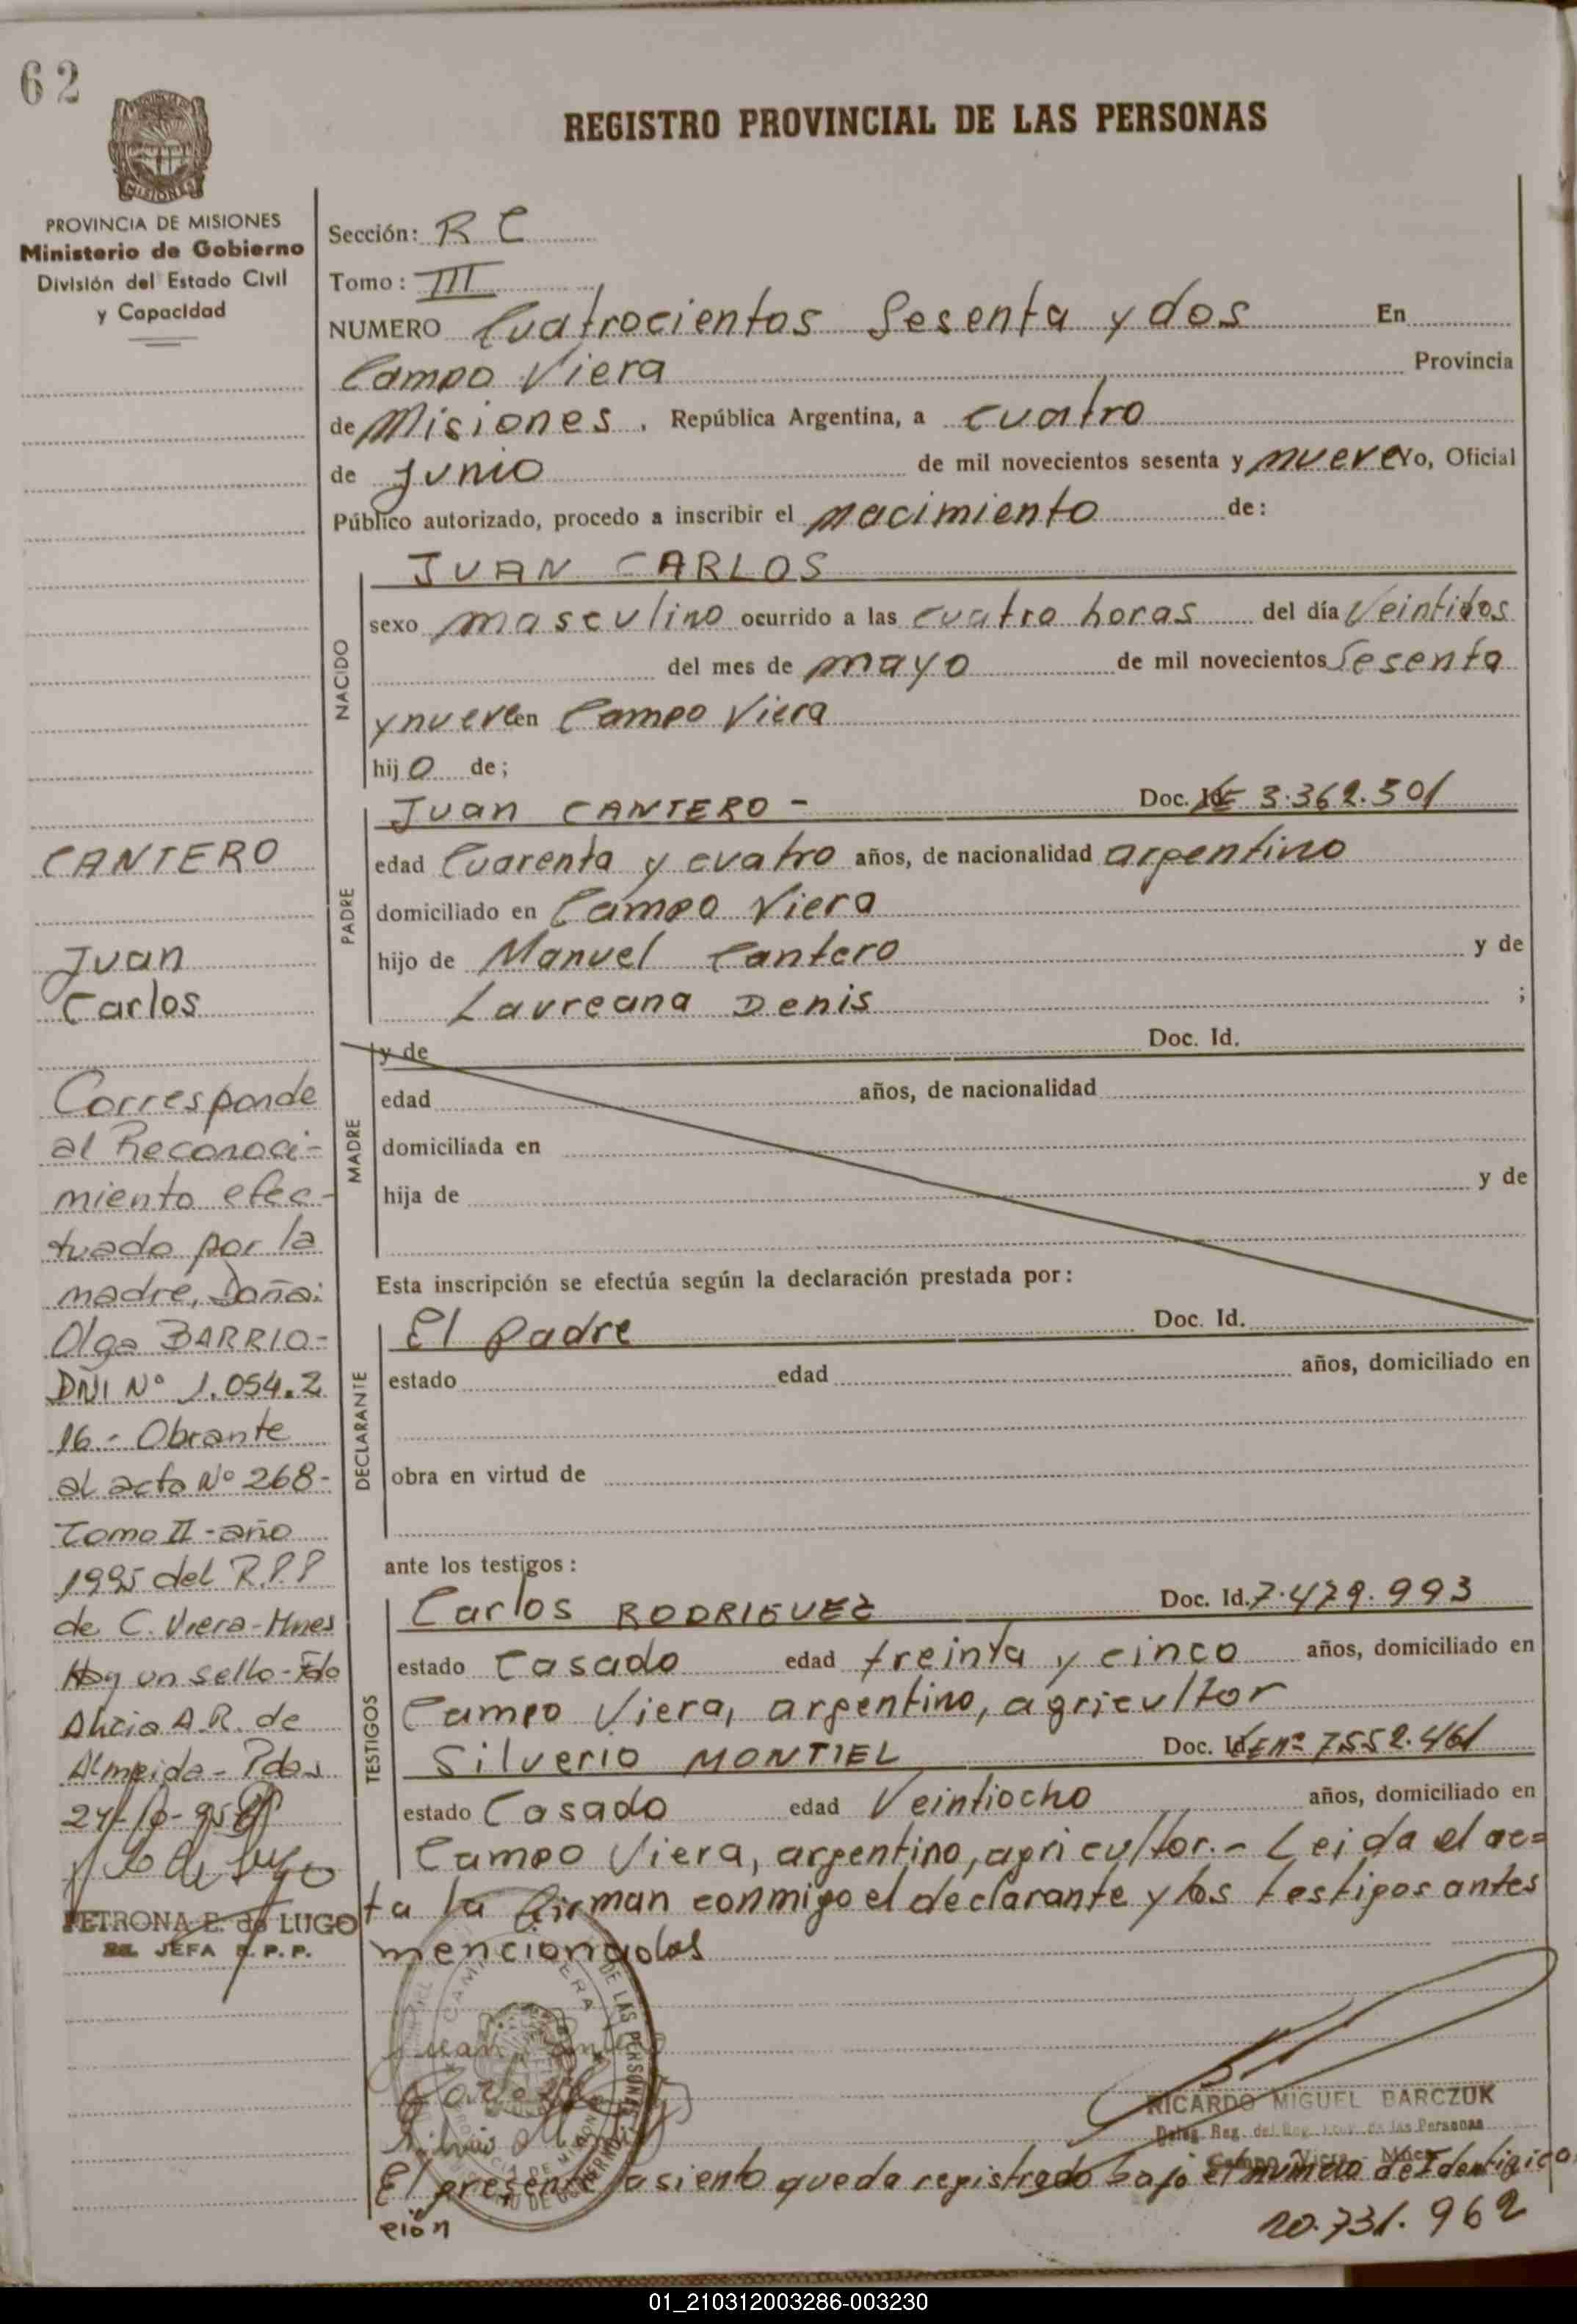 62
PROVINCIA DE MISIONES
MISIONES
PROVINCIA DE MISIONES
Ministerio de Gobierno
División del Estado Civil
y Capacidad
CANTERO
Juan
Carlos
Corresponde
al Reconoci-
miento efec-
tuado por la
madre, Doña:
Olga BARRIO-
DNI Nº 1.054.2
16.- Obrante
al acta Nº 268-
Tomo II - año
1995 del R.P.P
de C. Viera-Mnes
Hay un sello-Fdo
Alicia A.R. de
Almeida - Pdas
24-10-95
PETRONA E. de LUGO
JEFA R.P.P.
REGISTRO PROVINCIAL DE LAS PERSONAS
Sección: R C
Tomo: III
NUMERO Cuatrocientos Sesenta y dos En
Campo Viera Provincia
de Misiones, República Argentina, a cuatro
de Junio de mil novecientos sesenta y nueve Yo, Oficial
Público autorizado, procedo a inscribir el nacimiento de:
NACIDO
JUAN CARLOS
sexo masculino ocurrido a las cuatro horas del día Veintidos
del mes de mayo de mil novecientos Sesenta
y nueve en Campo Viera
hijo de;
PADRE
Juan CANTERO - Doc. LE 3.362.501
edad Cuarenta y cuatro años, de nacionalidad argentino
domiciliado en Campo Viera
hijo de Manuel Cantero y de
Laureana Denis ;
MADRE
y de Doc. Id.
edad años, de nacionalidad
domiciliada en
hija de y de
Esta inscripción se efectúa según la declaración prestada por:
DECLARANTE
El padre Doc. Id.
estado edad años, domiciliado en
obra en virtud de
ante los testigos:
TESTIGOS
Carlos RODRIGUEZ Doc. Id. 7.479.993
estado Casado edad treinta y cinco años, domiciliado en
Campo Viera, argentino, agricultor
Silverio MONTIEL Doc. Id. LE nº 7.552.461
estado Casado edad Veintiocho años, domiciliado en
Campo Viera, argentino, agricultor.- Leida el ac=
ta la firman conmigo el declarante y los testigos antes
mencionados
RICARDO MIGUEL BARCZUK
Deleg. Reg. del Reg. Prov. de las Personas
Campo Viera - Mnes
El presente asiento queda registrado bajo el numero de Identifica
ción
20.731.962
01_210312003286-003230